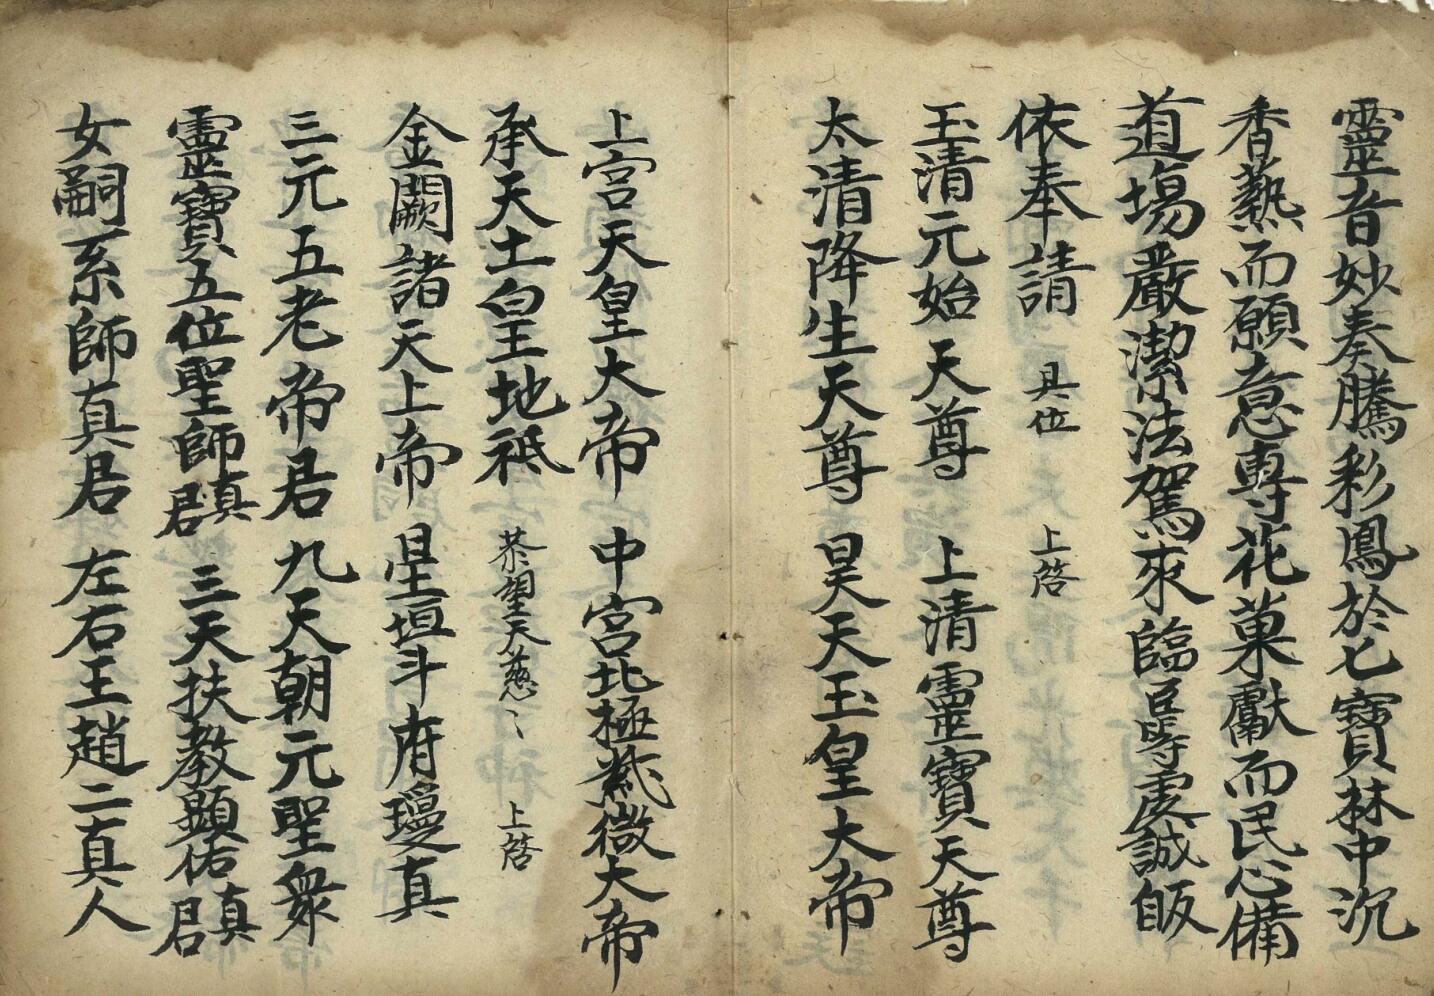 靈音妙奏騰彩鳳於七寶林中沉
香爇而願意專花菓獻而民心備
道場嚴潔法駕來臨臣等虔誠皈
依奉請 具位 上啓
玉清元始天尊 上清靈寶天尊
太清降生天尊 昊天玉皇大帝
上宮天皇大帝 中宮北極紫微大帝
承天土皇地祗 恭望天慈〻 上啓
金闕諸天上帝 星垣斗府璇真
三元五老帝君 九天朝元聖衆
靈寶五位聖師真君 三天扶教顯佑真君
女嗣系師真君 左右王趙二真人